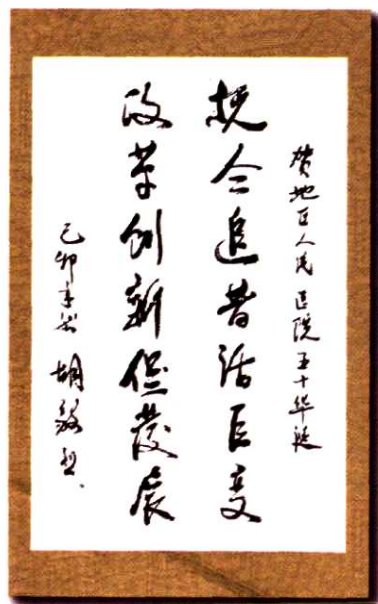 贺地区人民医院五十华诞
抚今追昔话巨变
改革创新促发展
己卯年 胡 题